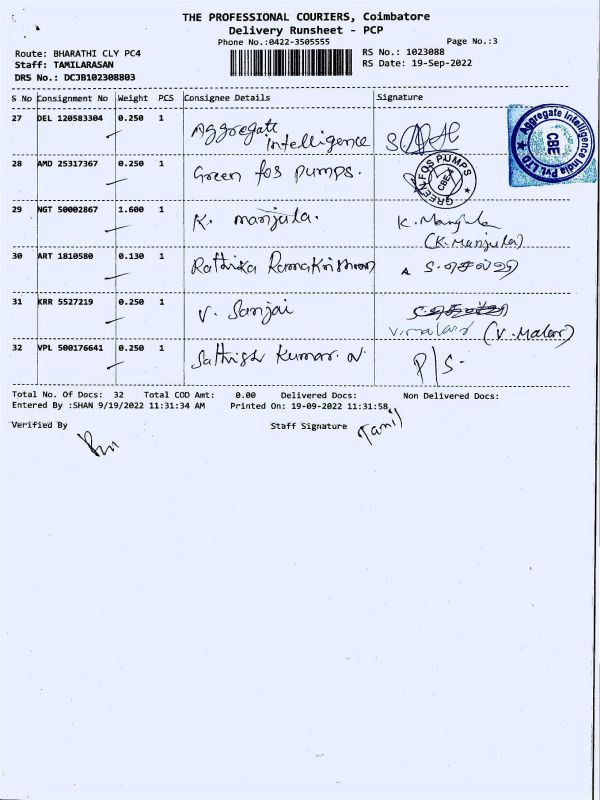 THE PROFESSIONAL COURIERS, Coimbatore
Delivery Runsheet - PCP
Phone No.:0422-3505555
Page No.:3
Route: BHARATHI CLY PC4
RS No.: 1023088
Staff: TAMILARASAN
RS Date: 19-Sep-2022
DRS No.: DCJB102308803
S No Consignment No Weight PCS Consignee Details Signature
27 DEL 120583304 0.250 1 Aggregate intelligence
Aggregate Intelligence India Pvt. LTD CBE
28 AMD 25317367 0.250 1 Green fos pumps.
GREEN FOS PUMPS CBE-4
29 NGT 50002867 1.600 1 K. manjula. K. Manjula
(K. Manjula)
30 ART 1810580 0.130 1 Rathika Ramakrishnan
31 KRR 5527219 0.250 1 V. Sanjai
V. malar (V. Malar)
32 VPL 500176641 0.250 1 Sathish Kumar. N. P/S-
Total No. Of Docs: 32 Total COD Amt: 0.00 Delivered Docs: Non Delivered Docs:
Entered By :SHAN 9/19/2022 11:31:34 AM Printed On: 19-09-2022 11:31:58
Verified By Staff Signature Tamil